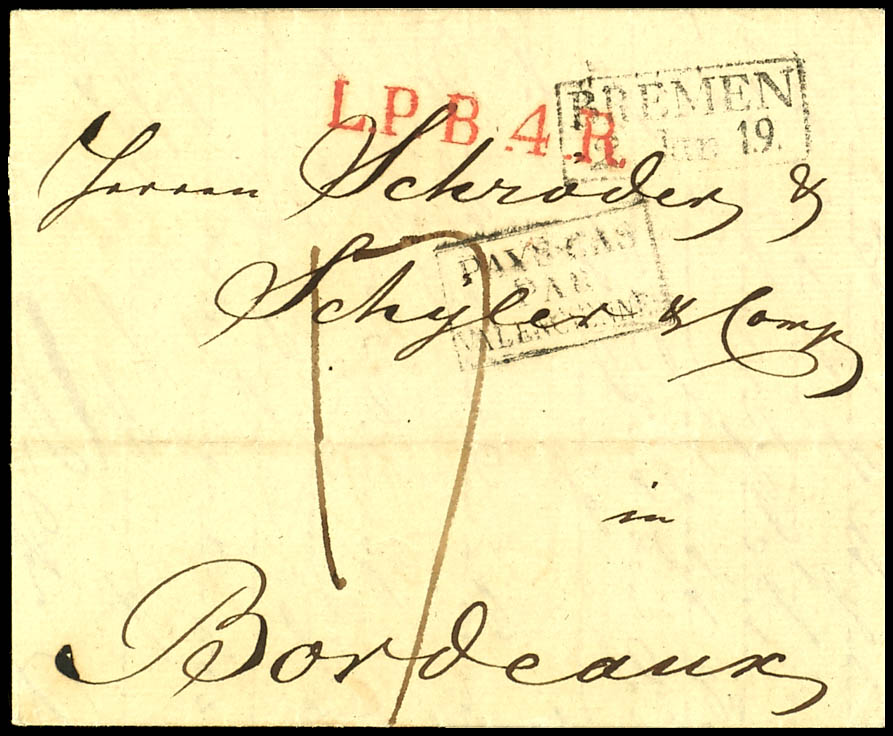 L.P.B.4.R.
BREMEN
Jun 19.
Herren Schroder &
Schyler & Comp
PAYS-BAS
PAR
VALENCIENNES
17
in
Bordeaux